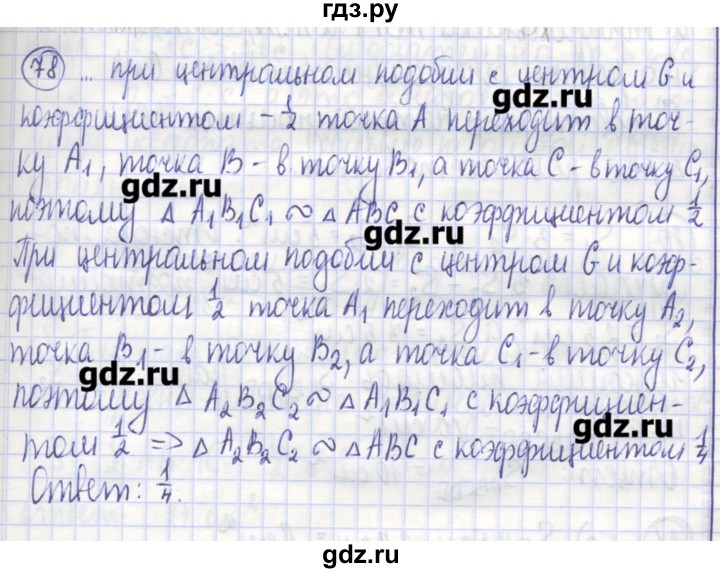 гдз.ру
78 ... при центральном подобии с центром G и
коэффициентом -1/2 точка A переходит в точ-
ку A₁, точка B - в точку B₁, а точка C - в точку C₁,
gdz.ru
поэтому △ A₁B₁C₁ ∾ △ ABC с коэффициентом 1/2
gdz.ru
При центральном подобии с центром G и коэф-
фициентом 1/2 точка A₁ переходит в точку A₂,
точка B₁ - в точку B₂, а точка C₁ - в точку C₂,
gdz.ru
поэтому △ A₂B₂C₂ ∾ △ A₁B₁C₁ с коэффициен-
gdz.ru
том 1/2 => △ A₂B₂C₂ ∾ △ ABC с коэффициентом 1/4
Ответ: 1/4.
gdz.ru